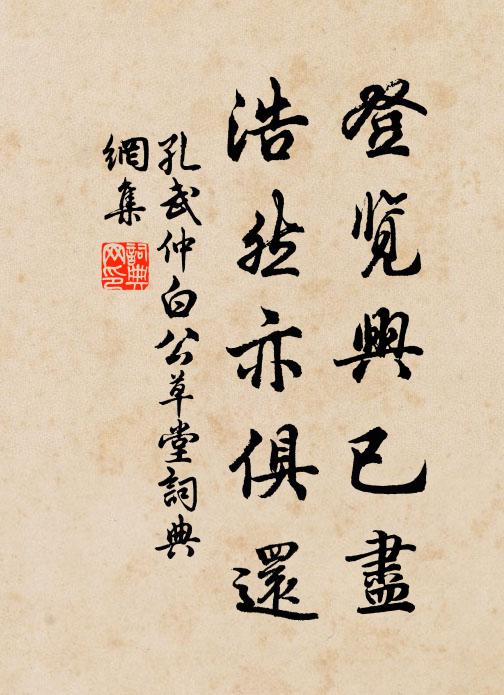 登覽興已盡
浩然亦俱還
孔武仲白公草堂詞典
網集
詞典
网印